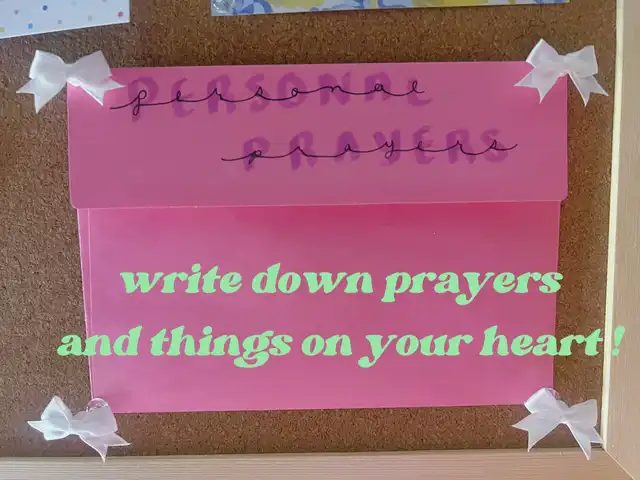 PERSONAL
personal
PRAYERS
prayers
write down prayers
and things on your heart!